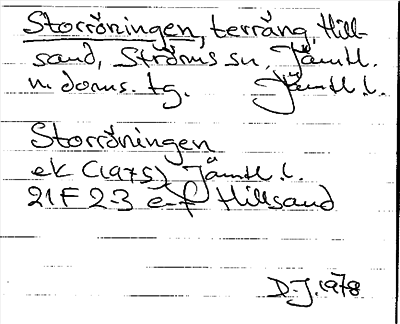 Storröningen, terräng, Hill-
sand, Ströms sn, Jämtl.
n. doms. tg. Jämtl. l.
Storröningen
ek (1975) Jämtl. l.
21F 2-3 e-f Hillsand
D-J. 1978